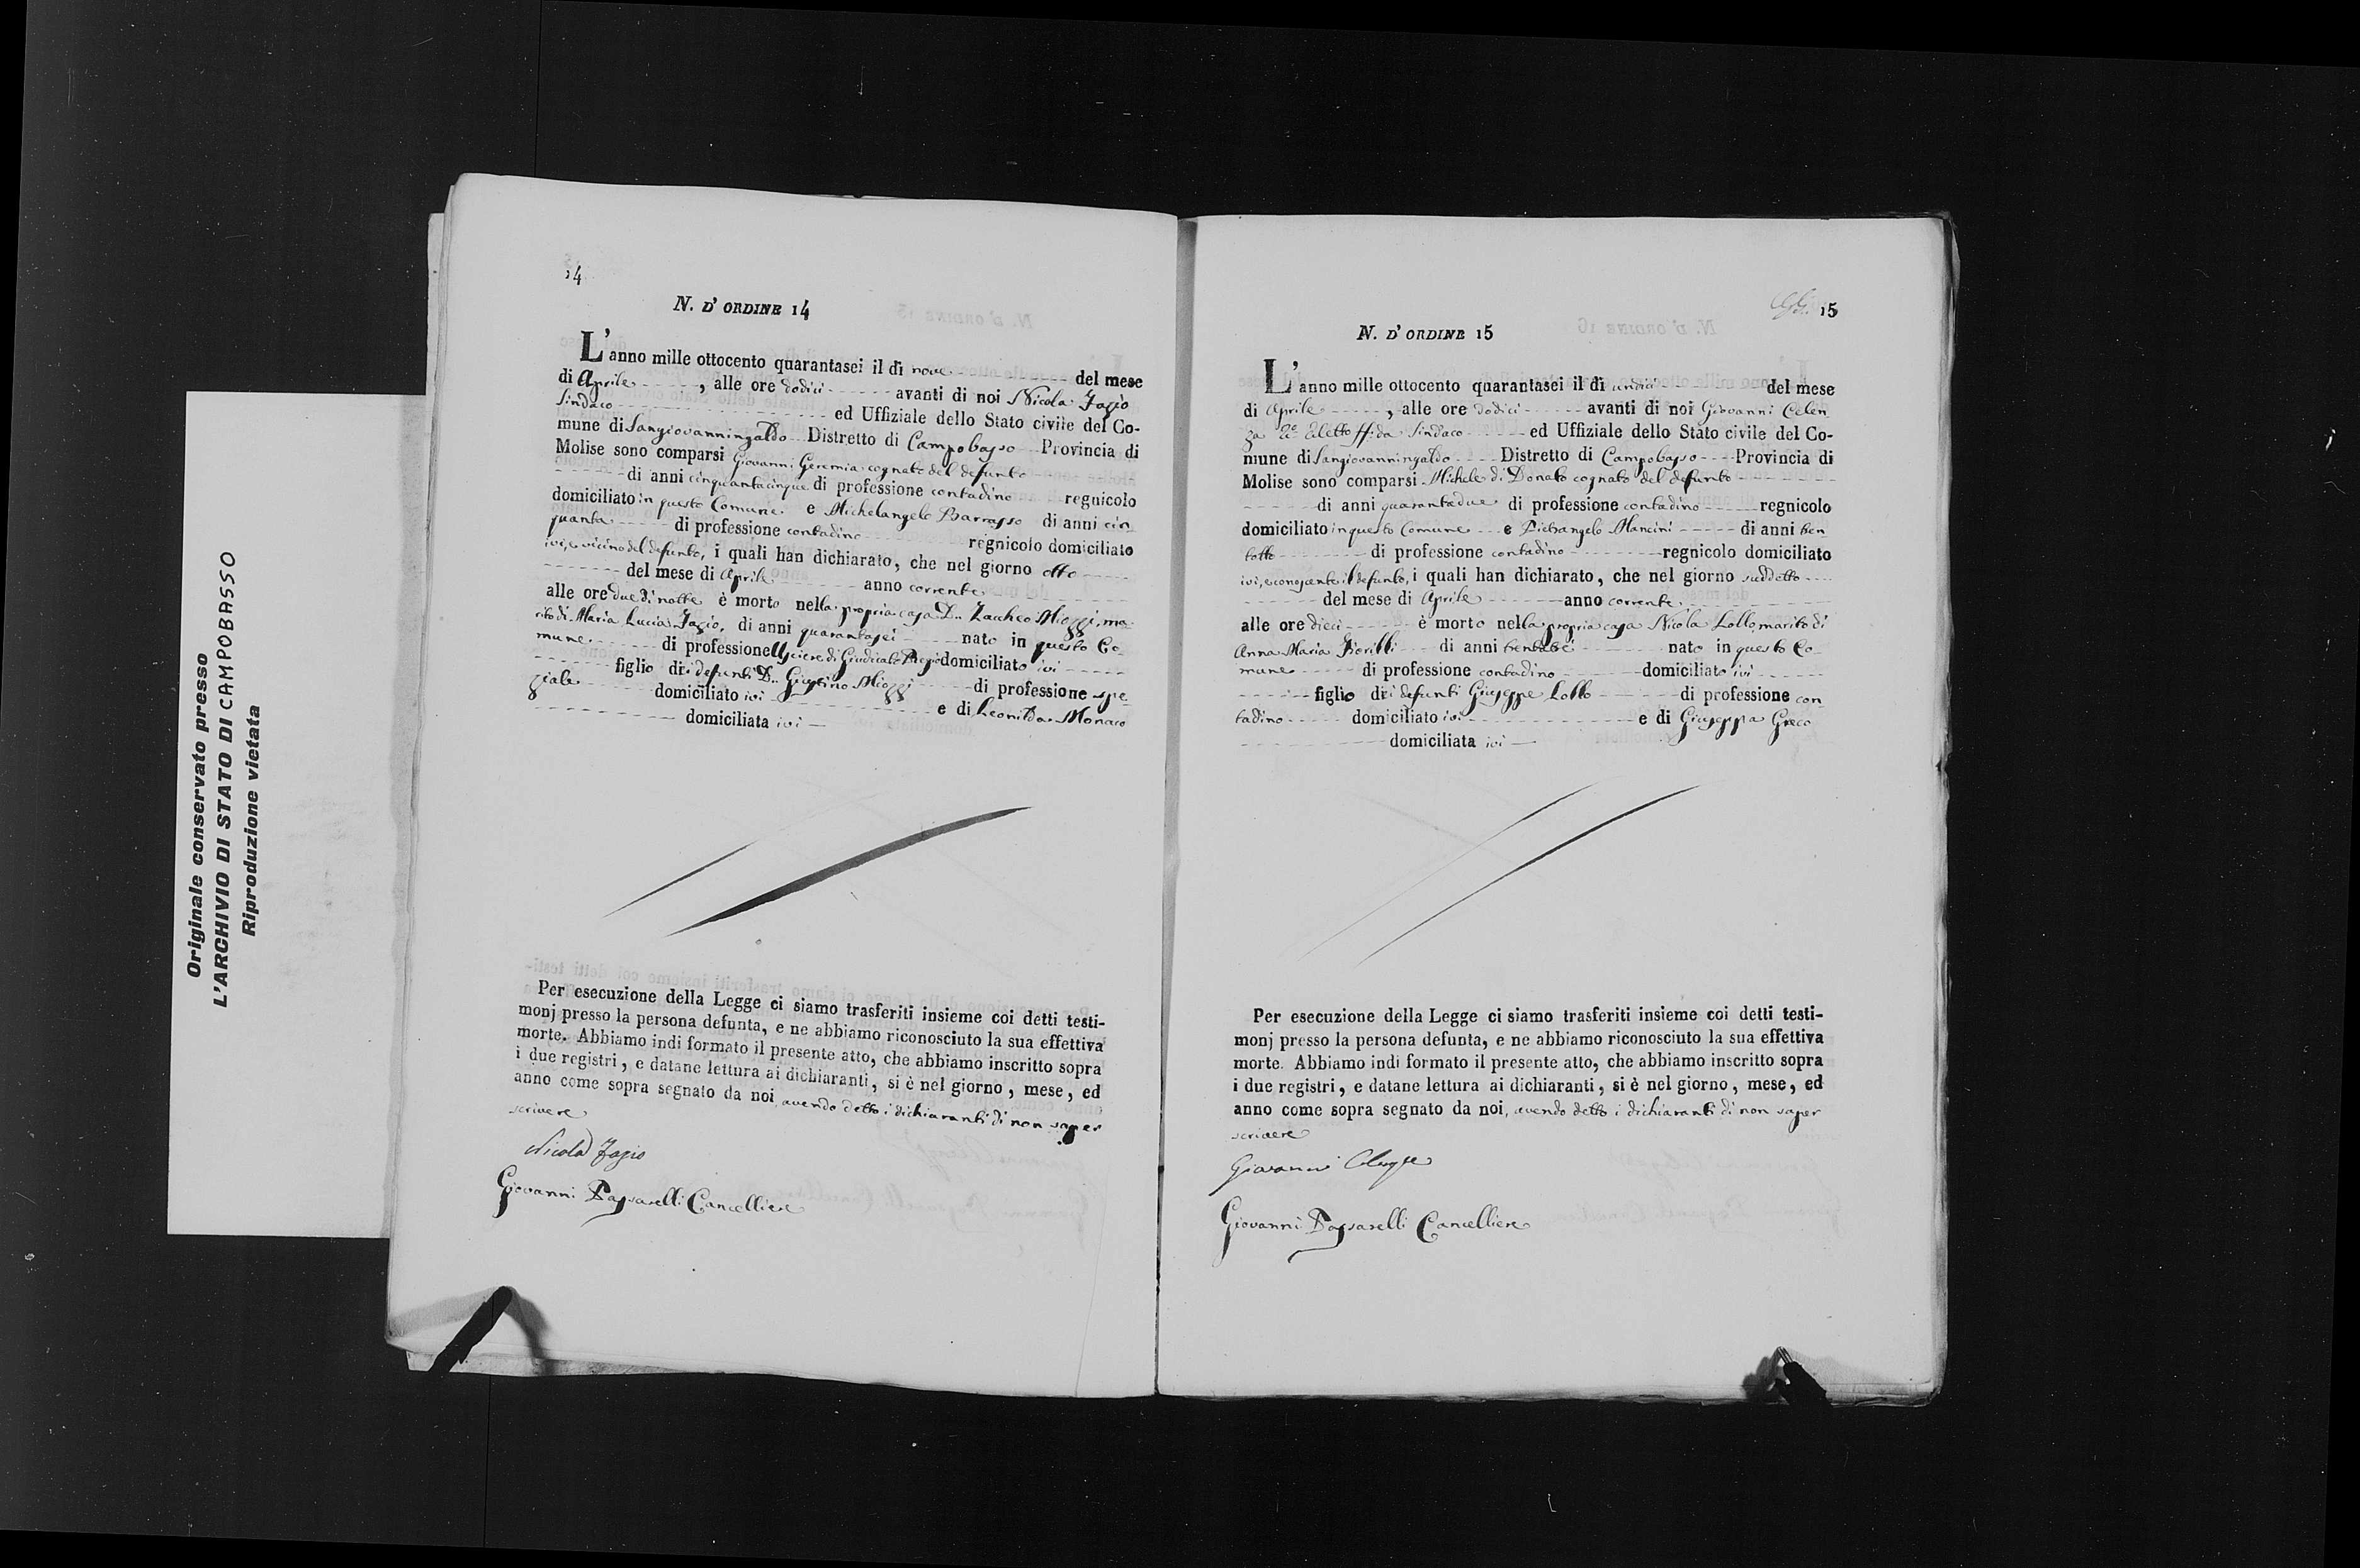 Originale conservato presso
L'ARCHIVIO DI STATO DI CAMPOBASSO
Riproduzione vietata
14
N. D' ORDINE 14
L'anno mille ottocento quarantasei il dì nove del mese
di Aprile, alle ore dodici avanti di noi Nicola Fazio
Sindaco ed Uffiziale dello Stato civile del Co-
mune di Sangiovanningaldo Distretto di Campobasso Provincia di
Molise sono comparsi Giovanni Geremia cognato del defunto
di anni cinquantacinque di professione contadino regnicolo
domiciliato in questo Comune e Michelangelo Barrasso di anni cin
quanta di professione contadino regnicolo domiciliato
ivi, e vicino del defunto, i quali han dichiarato, che nel giorno otto
del mese di Aprile anno corrente
alle ore due di notte è morto nella propria casa D. Zaccheo Miozzi, ma
rito di Maria Lucia Fazio, di anni quarantasei nato in questo Co-
mune di professione Usciere di Giudicato Regio domiciliato ivi
figlio di i defunti D. Giustino Miozzi di professione spe
ziale domiciliato ivi e di Leonilda Monaco
domiciliata ivi
Per esecuzione della Legge ci siamo trasferiti insieme coi detti testi-
monj presso la persona defunta, e ne abbiamo riconosciuto la sua effettiva
morte. Abbiamo indi formato il presente atto, che abbiamo inscritto sopra
i due registri, e datane lettura ai dichiaranti, si è nel giorno, mese, ed
anno come sopra segnato da noi, avendo detto i dichiaranti di non saper
scrivere
Nicola Fazio
Giovanni Passarelli Cancelliere
15
N. D' ORDINE 15
L'anno mille ottocento quarantasei il dì undici del mese
di Aprile, alle ore dodici avanti di noi Giovanni Celen
za 2.º Eletto ff. da Sindaco ed Uffiziale dello Stato civile del Co-
mune di Sangiovanningaldo Distretto di Campobasso Provincia di
Molise sono comparsi Michele di Donato cognato del defunto
di anni quarantadue di professione contadino regnicolo
domiciliato in questo Comune e Pietrangelo Mancini di anni tren
totto di professione contadino regnicolo domiciliato
ivi, e conoscente il defunto, i quali han dichiarato, che nel giorno suddetto
del mese di Aprile anno corrente,
alle ore dieci è morto nella propria casa Nicola Lollo, marito di
Anna Maria Fiorilli di anni trentasei nato in questo Co-
mune di professione contadino domiciliato ivi
figlio di i defunti Giuseppe Lollo di professione con
tadino domiciliato ivi e di Giuseppa Greco
domiciliata ivi
Per esecuzione della Legge ci siamo trasferiti insieme coi detti testi-
monj presso la persona defunta, e ne abbiamo riconosciuto la sua effettiva
morte. Abbiamo indi formato il presente atto, che abbiamo inscritto sopra
i due registri, e datane lettura ai dichiaranti, si è nel giorno, mese, ed
anno come sopra segnato da noi, avendo detto i dichiaranti di non saper
scrivere
Giovanni
Giovanni Passarelli Cancelliere